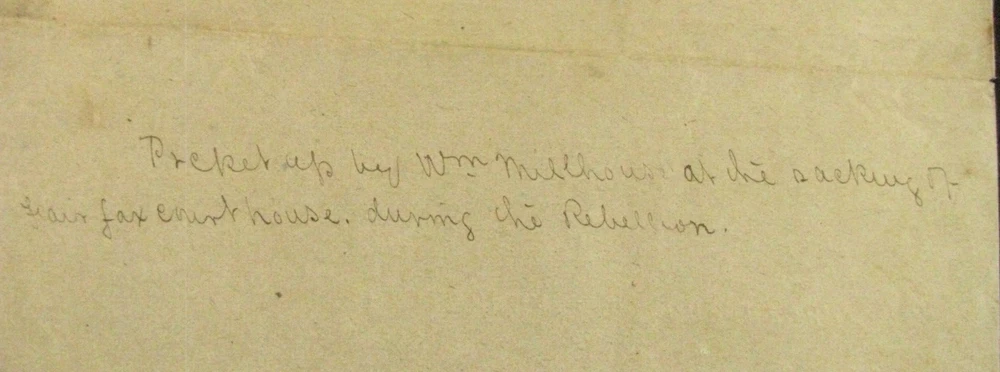 Picket up by Wm Millhouse at the sacking of
Fairfax courthouse. during the Rebellion.